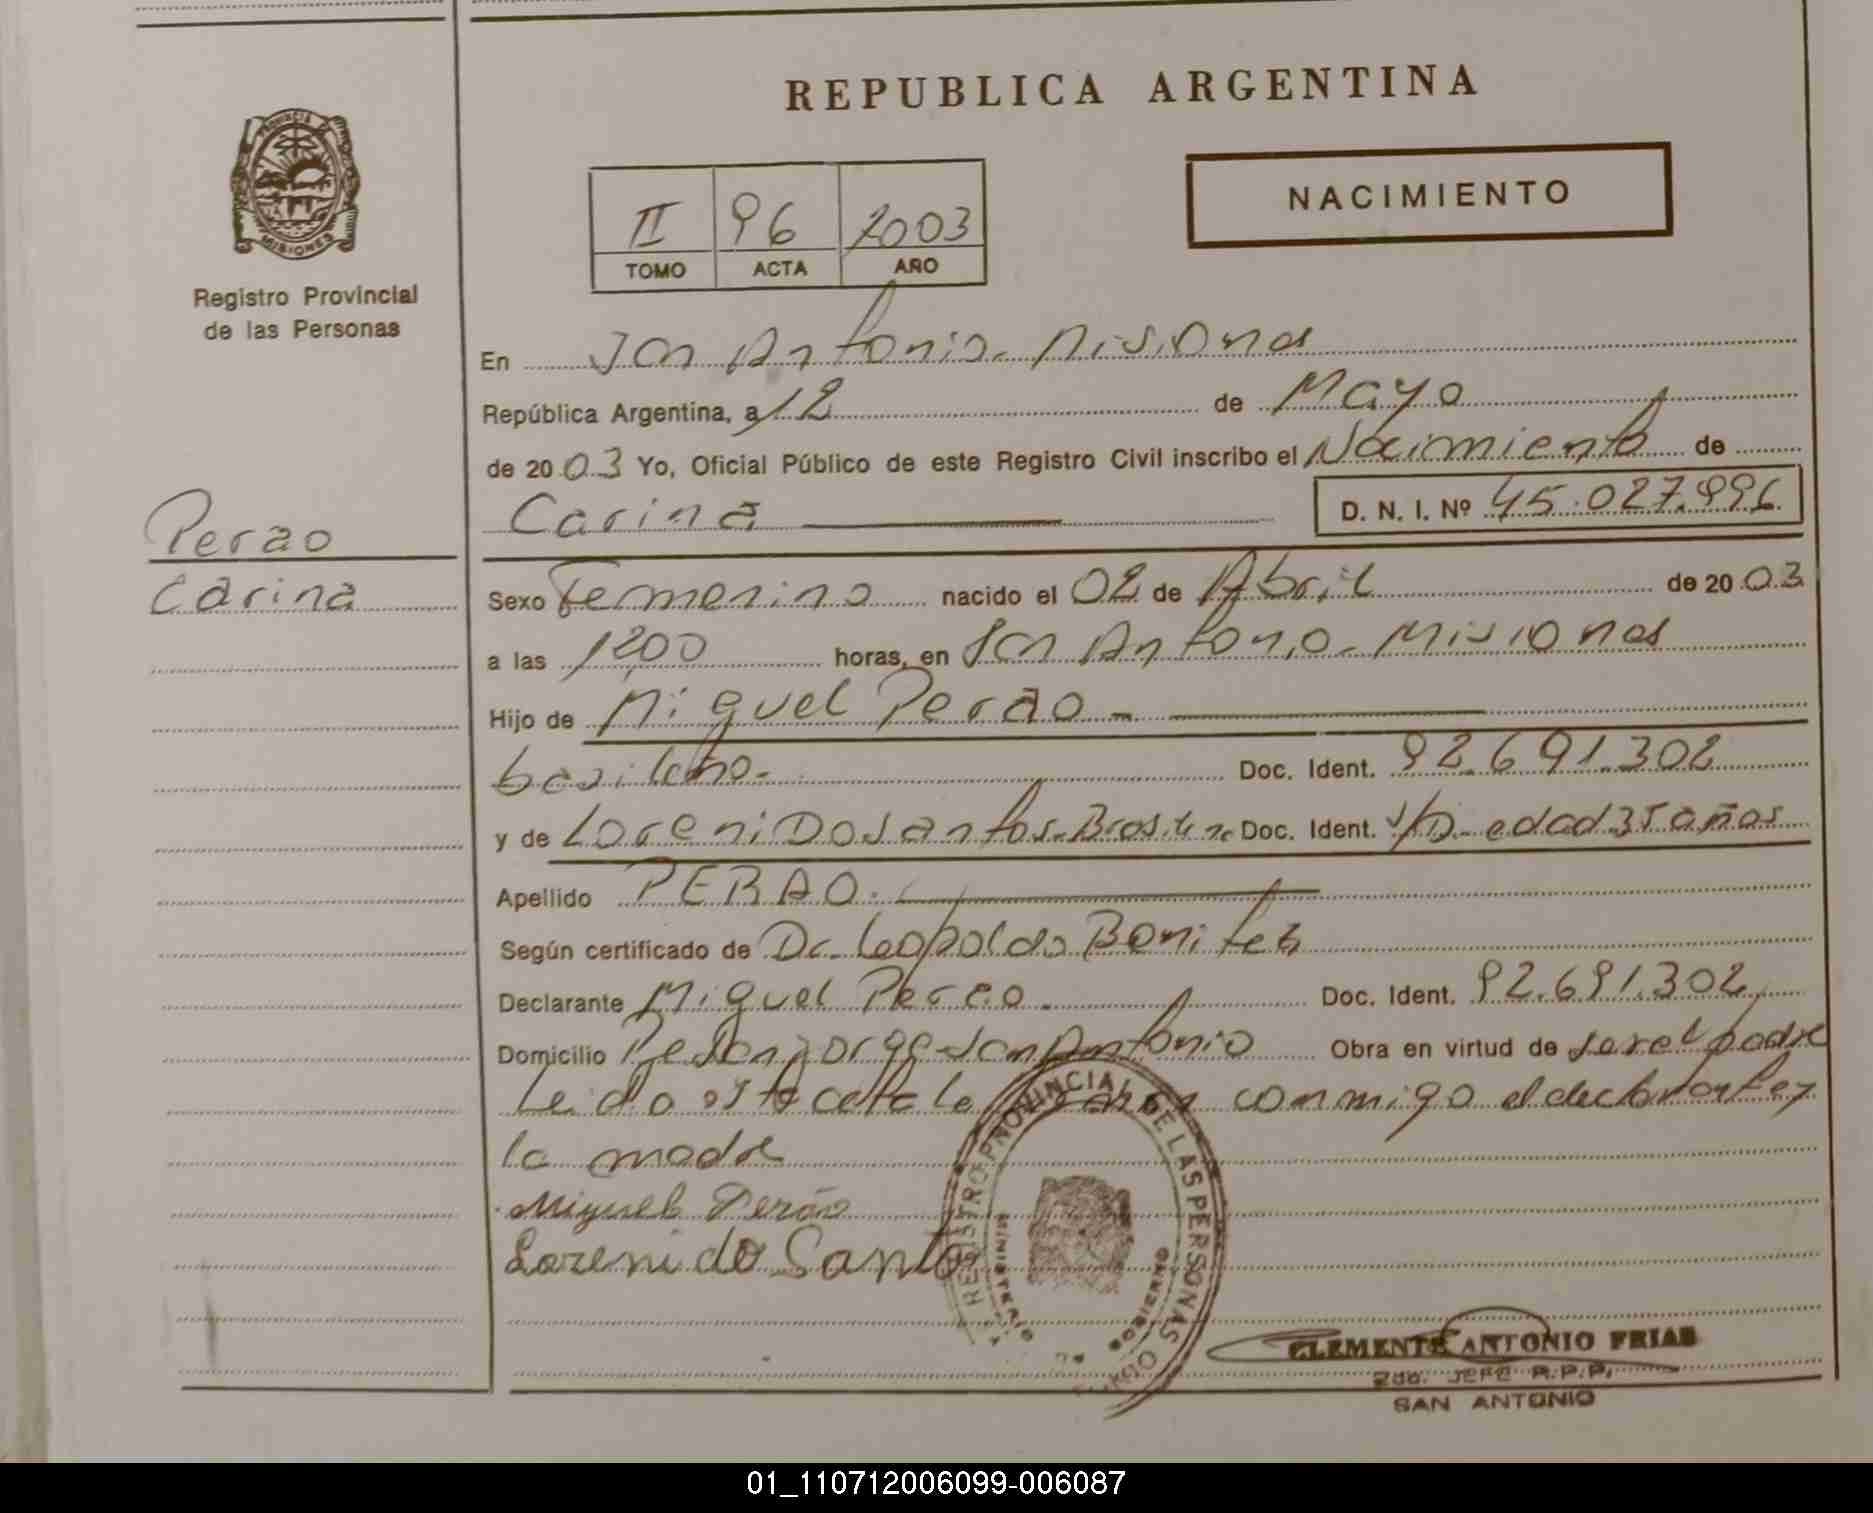 REPUBLICA ARGENTINA
NACIMIENTO
II 96 2003
TOMO ACTA AÑO
PROVINCIA DE MISIONES
Registro Provincial
de las Personas
En San Antonio. Misiones
República Argentina, a 12 de Mayo
de 2003 Yo, Oficial Público de este Registro Civil inscribo el Nacimiento de
Carina D. N. I. Nº 45.027.996
Perao
Carina
Sexo Femenino nacido el 02 de Abril de 2003
a las 1200 horas, en San Antonio - Misiones
Hijo de Miguel Perao -
Doc. Ident. 92.691.302
y de Loreni Dosantos. Doc. Ident. S/D. edad 35 años
Apellido PERAO.
Según certificado de Dr. Leopoldo Benitez
Declarante Miguel Perao. Doc. Ident. 92.691.302
Domicilio San Antonio Obra en virtud de ser el padre
Leido esta acta la conmigo el declarante y
la madre
Miguel Perão
Loreni do Santo
REGISTRO PROVINCIAL DE LAS PERSONAS
MINISTERIO GOBIERNO
CLEMENTE ANTONIO FRIAS
2do. JEFE R.P.P.
SAN ANTONIO
01_110712006099-006087